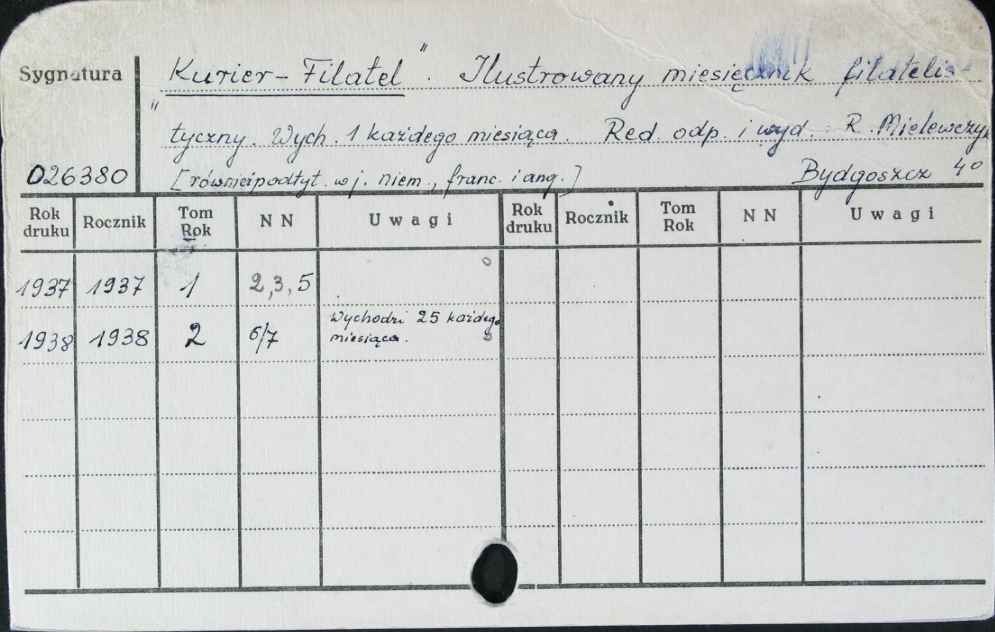 Sygnatura
„Kurier-Filatel”. Ilustrowany miesięcznik filatelis-
tyczny. Wych. 1 każdego miesiąca. Red. odp. i wyd. R. Mielewczyk
026380
[również podtyt. w j. niem., franc. i ang.] Bydgoszcz 4°
Rok druku Rocznik Tom Rok NN Uwagi Rok druku Rocznik Tom Rok NN Uwagi
1937 1937 1 2,3,5
1938 1938 2 6/7 Wychodzi 25 każdego
miesiąca.